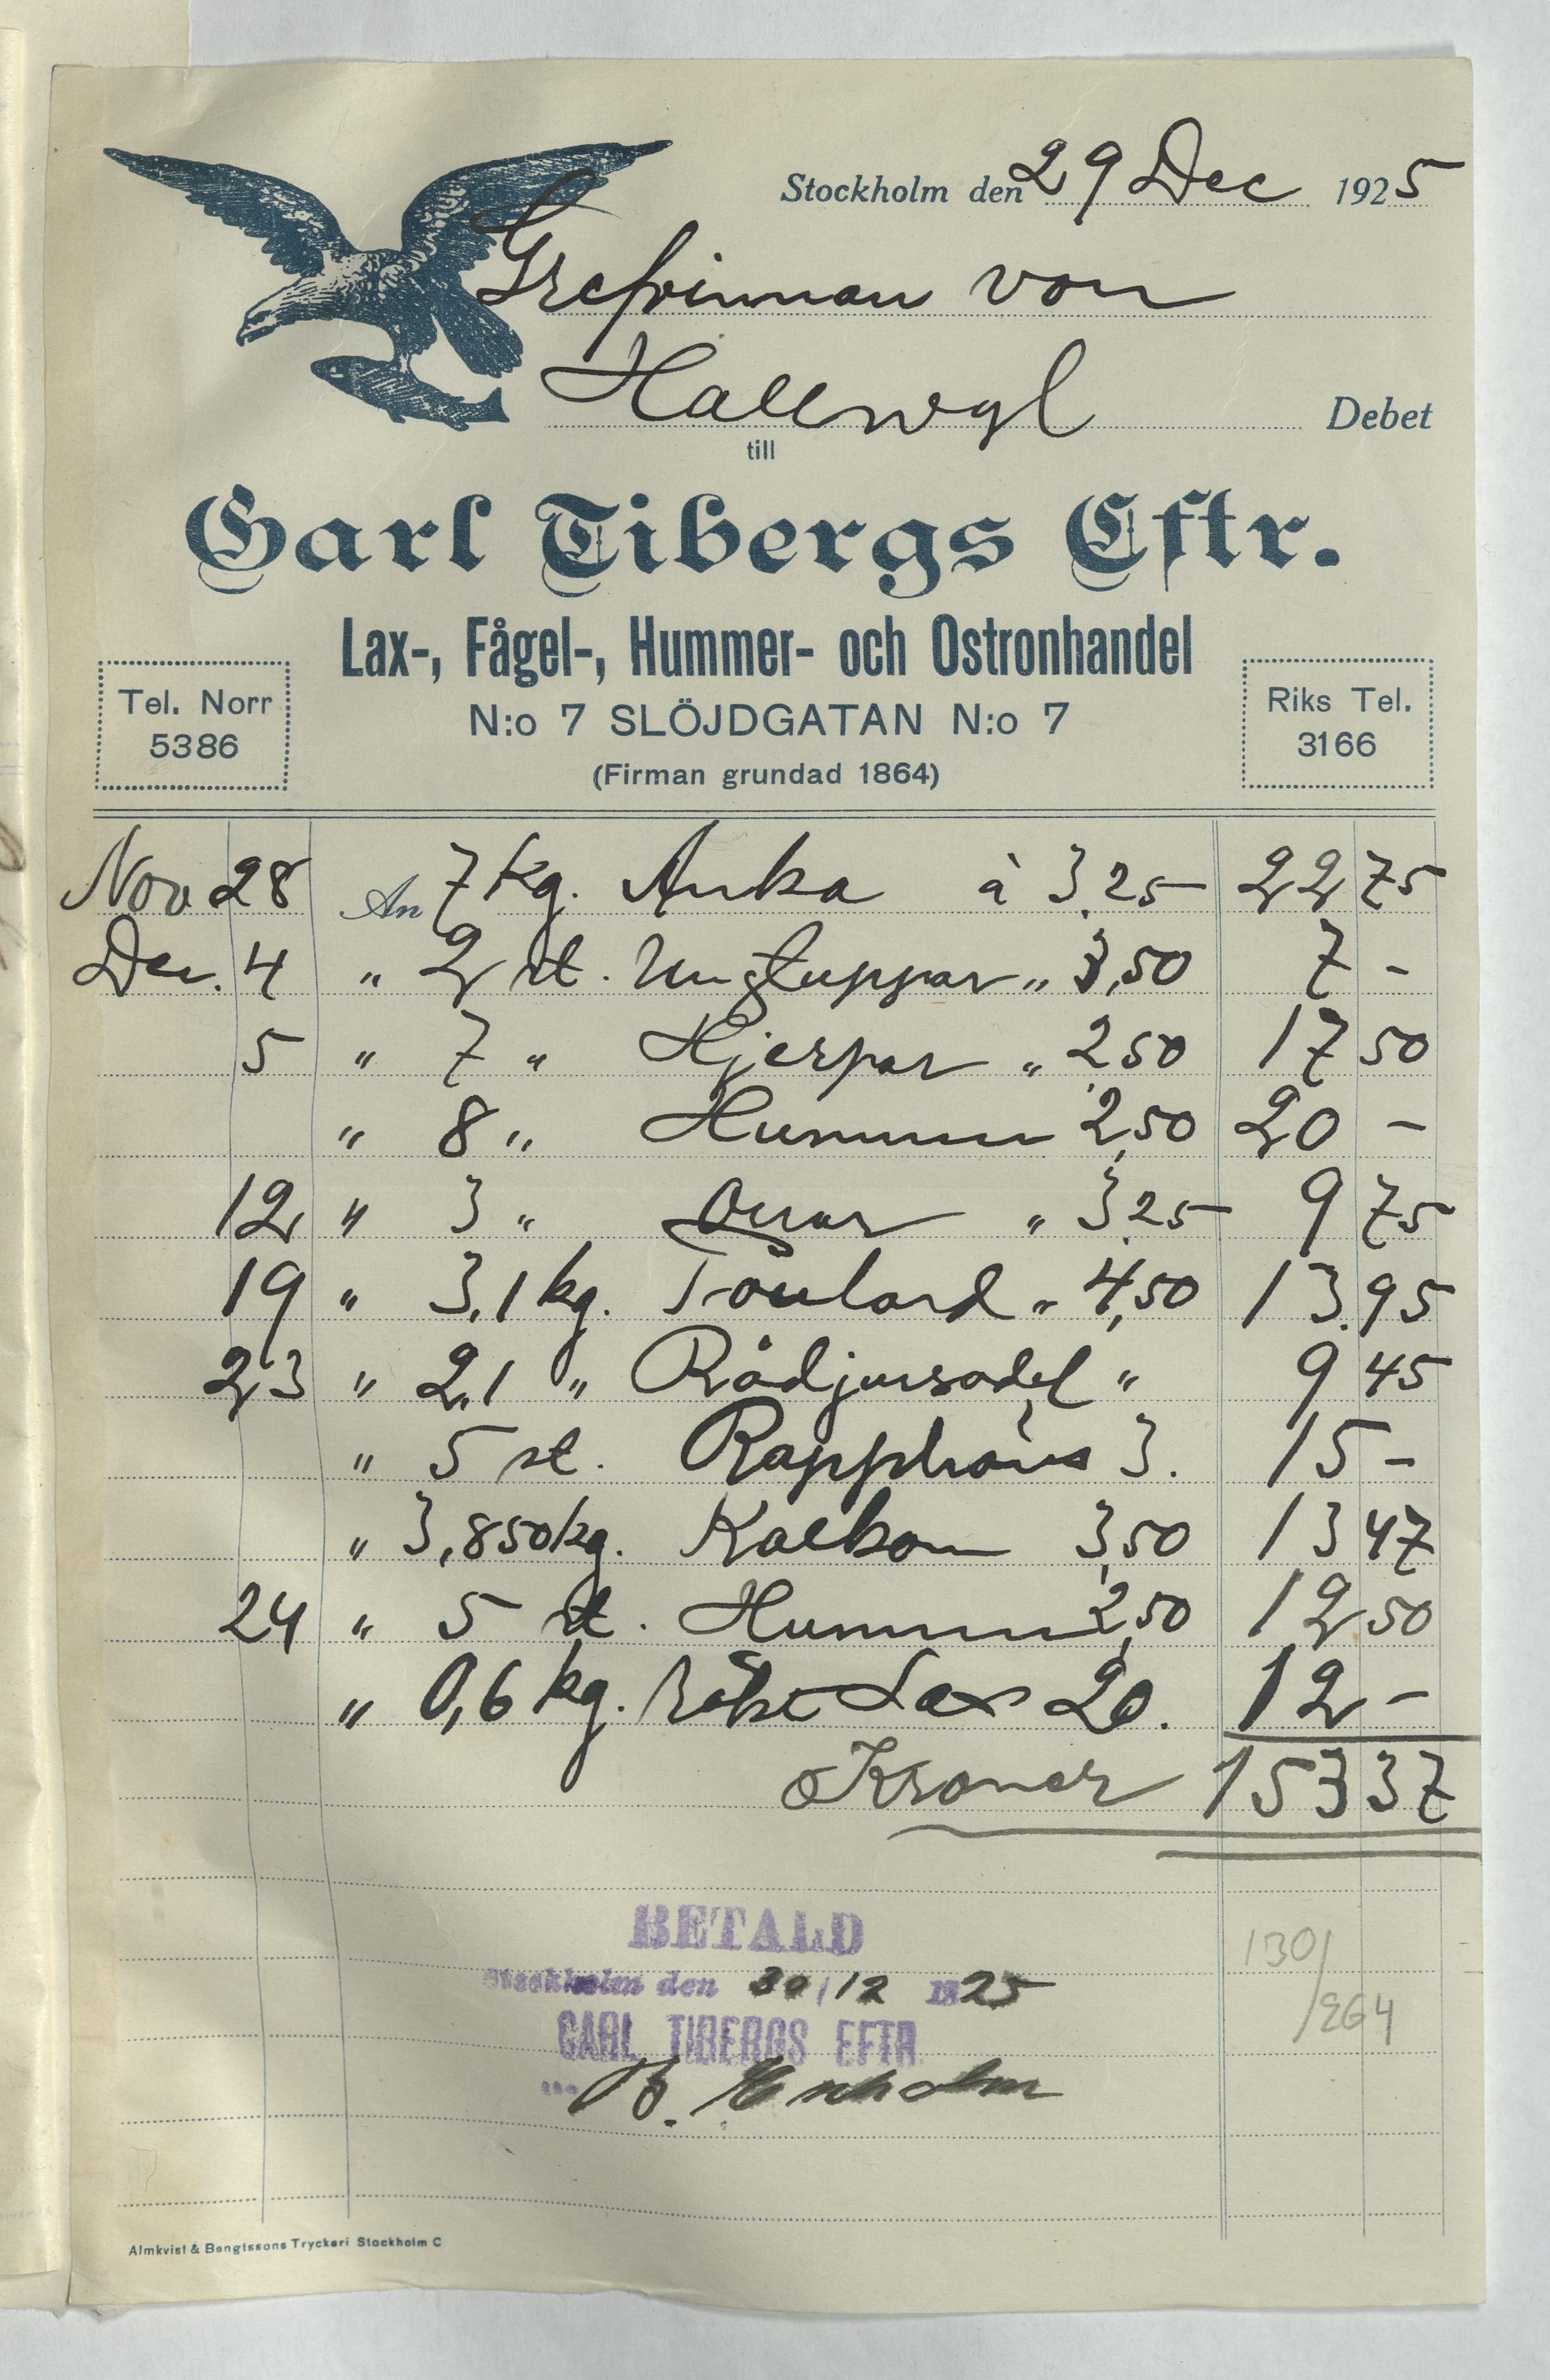 Stockholm den 29 Dec 1925
Grefvinnan von
Hallwyl Debet
till
Carl Tibergs Eftr.
Lax-, Fågel-, Hummer- och Ostronhandel
Tel. Norr
5386
N:o 7 SLÖJDGATAN N:o 7
(Firman grundad 1864)
Riks Tel.
3166
Nov 28 An 7 kg. Anka à 3,25 22 75
Dec. 4 " 2 st. Ungtuppar " 3,50 7 -
5 " 7 " Hjerpar " 2,50 17 50
" 8 " Hummer 2,50 20 -
12 " 3 " Orrar " 3,25 9 75
19 " 3,1 kg. Poulard " 4,50 13.95
23 " 2,1 " Rådjurssadel " 9 45
" 5 st. Rapphöns 3. 15 -
" 3,850 kg. Kalkon 3,50 13 47
24 " 5 st. Hummer 2,50 12 50
" 0,6 kg. Rökt Lax 20. 12 -
Kronor 153 37
BETALD
Stockholm den 30/12 1925
CARL TIBERGS EFTR.
130/
/264
Almkvist & Bengtssons Tryckeri Stockholm C